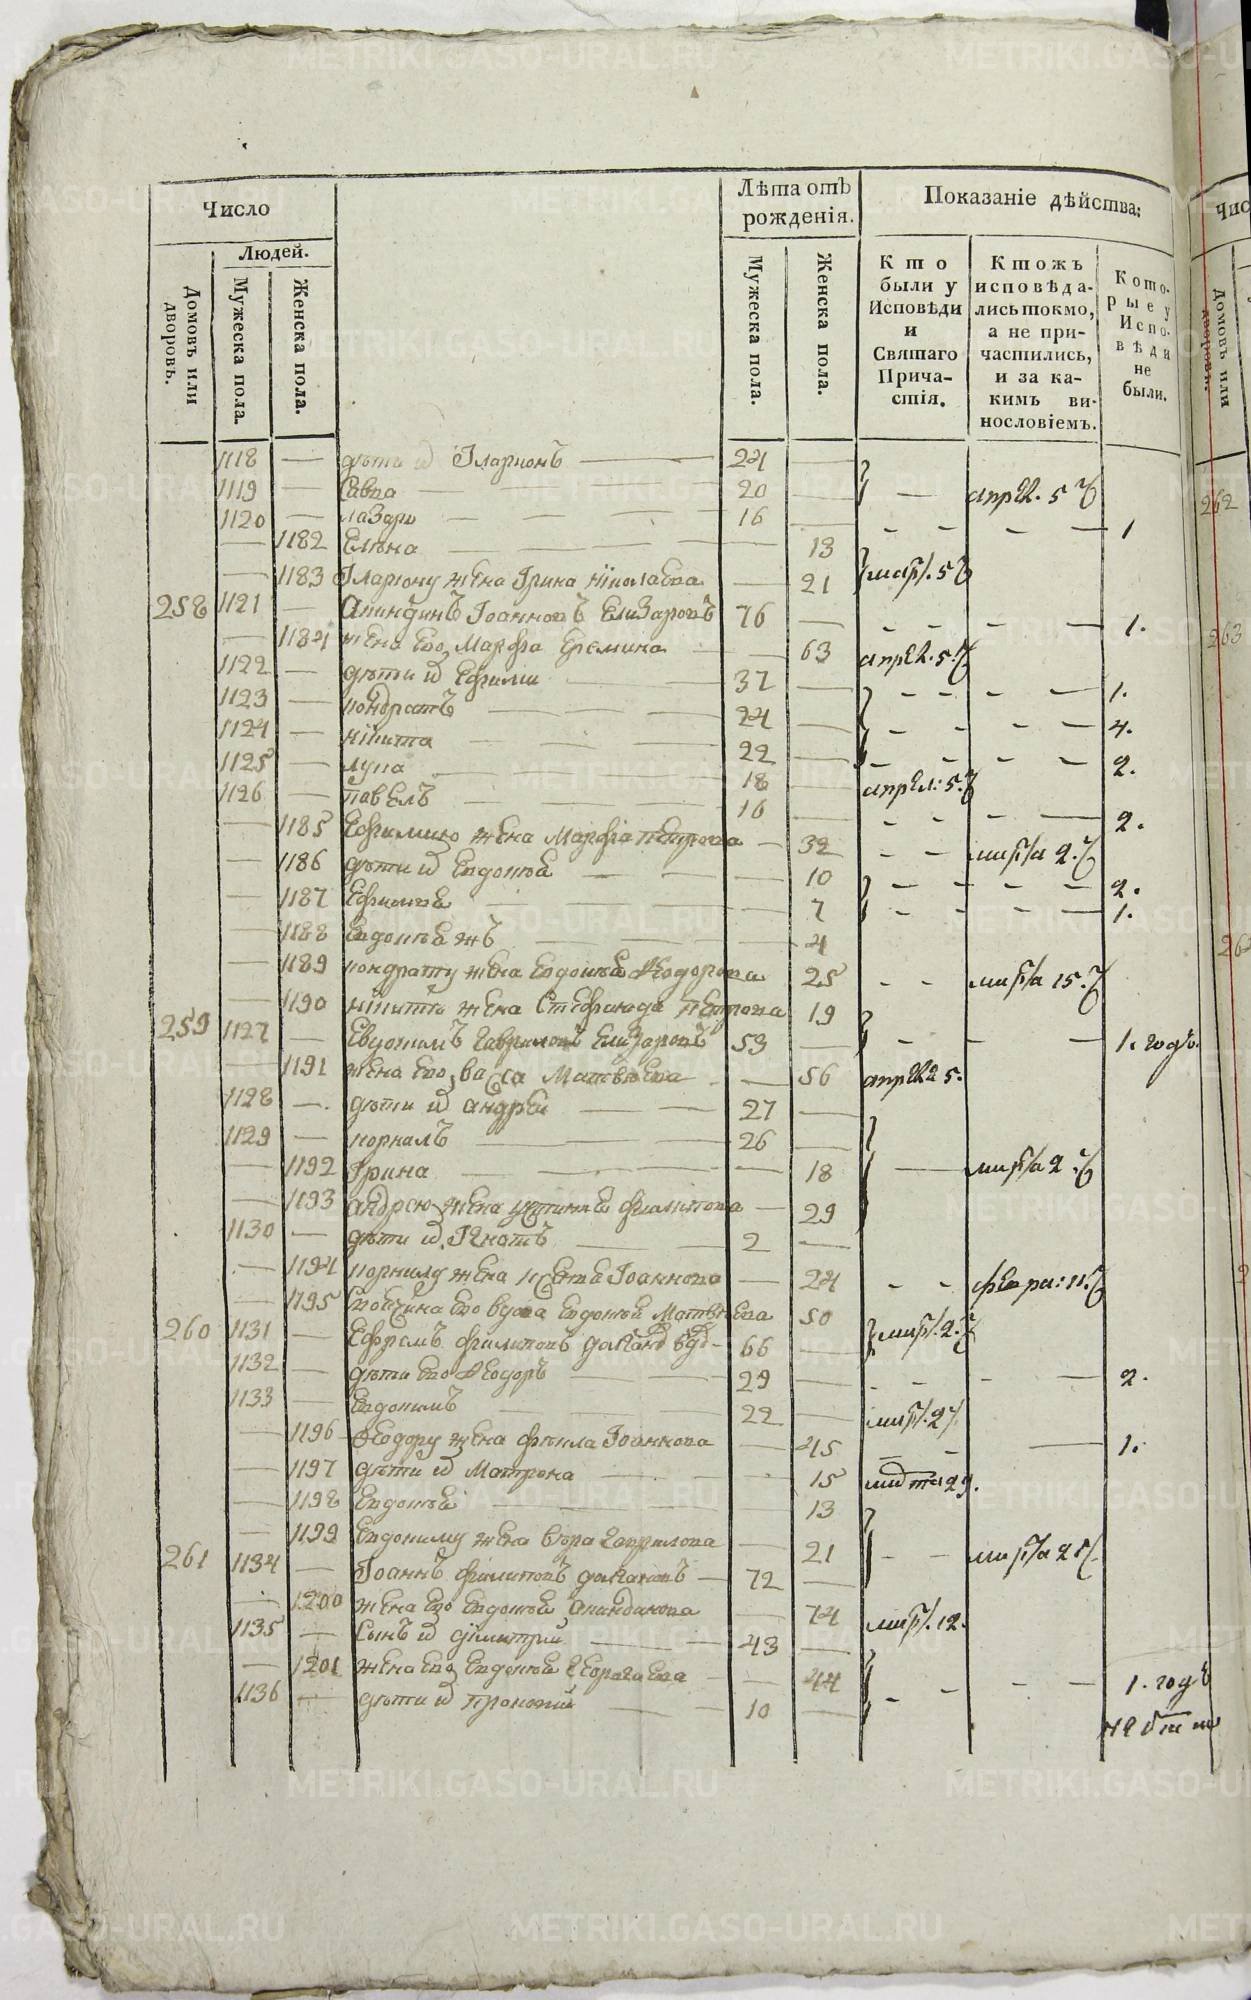 Число
Лѣта отъ рожденія.
Показаніе дѣйства:
Людей.
Домовъ или дворовъ.
Мужеска пола.
Женска пола.
Мужеска пола.
Женска пола.
Кто были у Исповѣди и Святаго Причастія.
Ктожъ исповѣдались токмо, а не причастились, и за какимъ винословіемъ.
Которые у Исповѣди не были.
1118 — дѣти их Іларионъ — 24 —
1119 — Савва — 20 — апрел. 5
1120 — лазарь — 16 — 1
— 1182 Елѣна — 13
— 1183 Іларіону жена Ірина Ніколаева — 21 март. 5
258 1121 — Іоанновъ Елизаровъ 76 — 1.
— 1184 жена ево Марфа Еремина — 63 апрел. 5.
1122 — дѣти их Ефимии — 37 — 1.
1123 — кондратъ — 24 — 4.
1124 — нікита — 22 — 2.
1125 — лупа — 18 — апрел: 5.
1126 — павелъ — 16 — 2.
— 1185 Ефимию жена Марфа петрова — 32 — марта 2.
— 1186 дѣти их Евдокѣа — 10 — 2.
— 1187 Ефимиа — 7 — 1.
— 1188 Евдокѣа жъ — 4
— 1189 кондрату жена Евдокѣа Ѳеодорова 25 — марта 15.
— 1190 нікитѣ жена Стефанида петрова 19
259 1127 — Евдокимъ Гавриловъ Елизаровъ 53 — 1. годъ.
— 1191 жена ево васса Матвѣева — 56 апрел 5.
1128 — дѣти их андрей — 27 —
1129 — корнилъ — 26 —
— 1192 Ірина — 18 — марта 2
— 1193 андрею жена устинѣа филипова — 29
1130 — дѣти их Ігнатъ — 2 —
— 1194 корнилу жена ксенѣа Іоаннова — 24 — феврал: 11.
— 1195 ево вдова Евдокѣа Матвѣева 50
260 1131 — Ефремъ филиповъ вд — 66 — март. 2.
1132 — дѣти ево Ѳеодоръ — 29 — 2.
1133 — Евдокимъ — 22 — март. 2
— 1196 Ѳеодору жена фекла Іоаннова — 45 — 1.
— 1197 дѣти их Матрона — 15 марта 29.
— 1198 Евдокѣа — 13
— 1199 Евдокиму жена вѣра Гаврилова — 21 — марта 2
261 1134 — Іоаннъ филиповъ — 72 —
— 1200 жена ево Евдокѣа — 74 март. 12.
1135 — Сынъ их дімитрий — 43 —
— 1201 жена ево Евдокѣа Георгиева — 44 — 1. годъ
1136 — дѣти их прокопий — 10 —
Чис
Домовъ или дворовъ.
262
263
METRIKI.GASO-URAL.RU